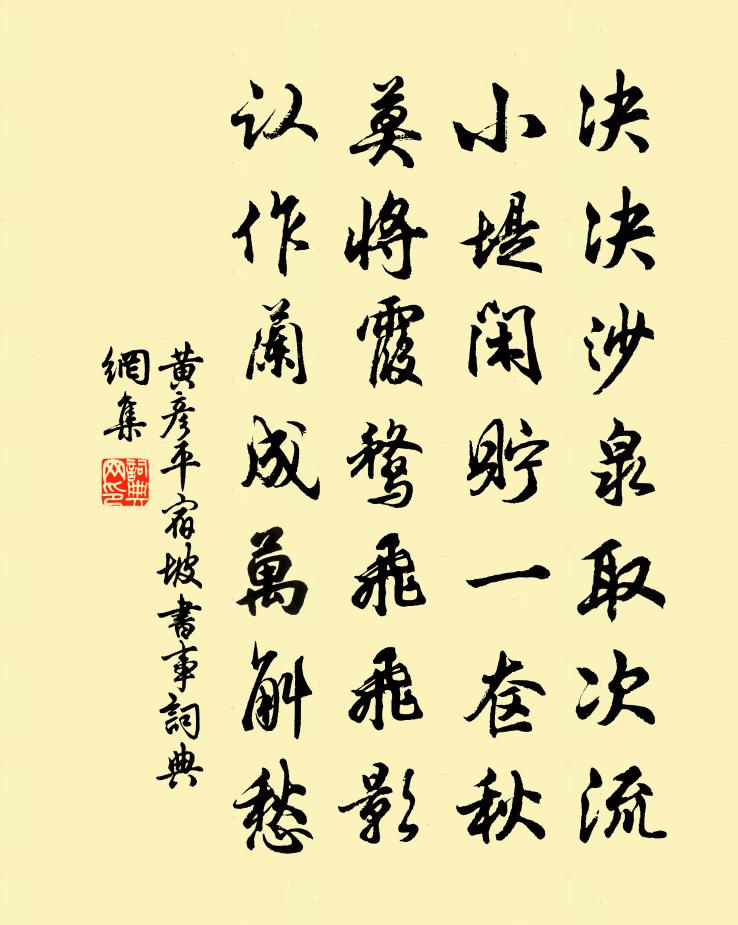 决决沙泉取次流
小堤閑貯一奁秋
莫將霞鶩飛飛影
认作蘭成萬斛愁
黃彥平宿坡書事詞典
網集
詞典
网印